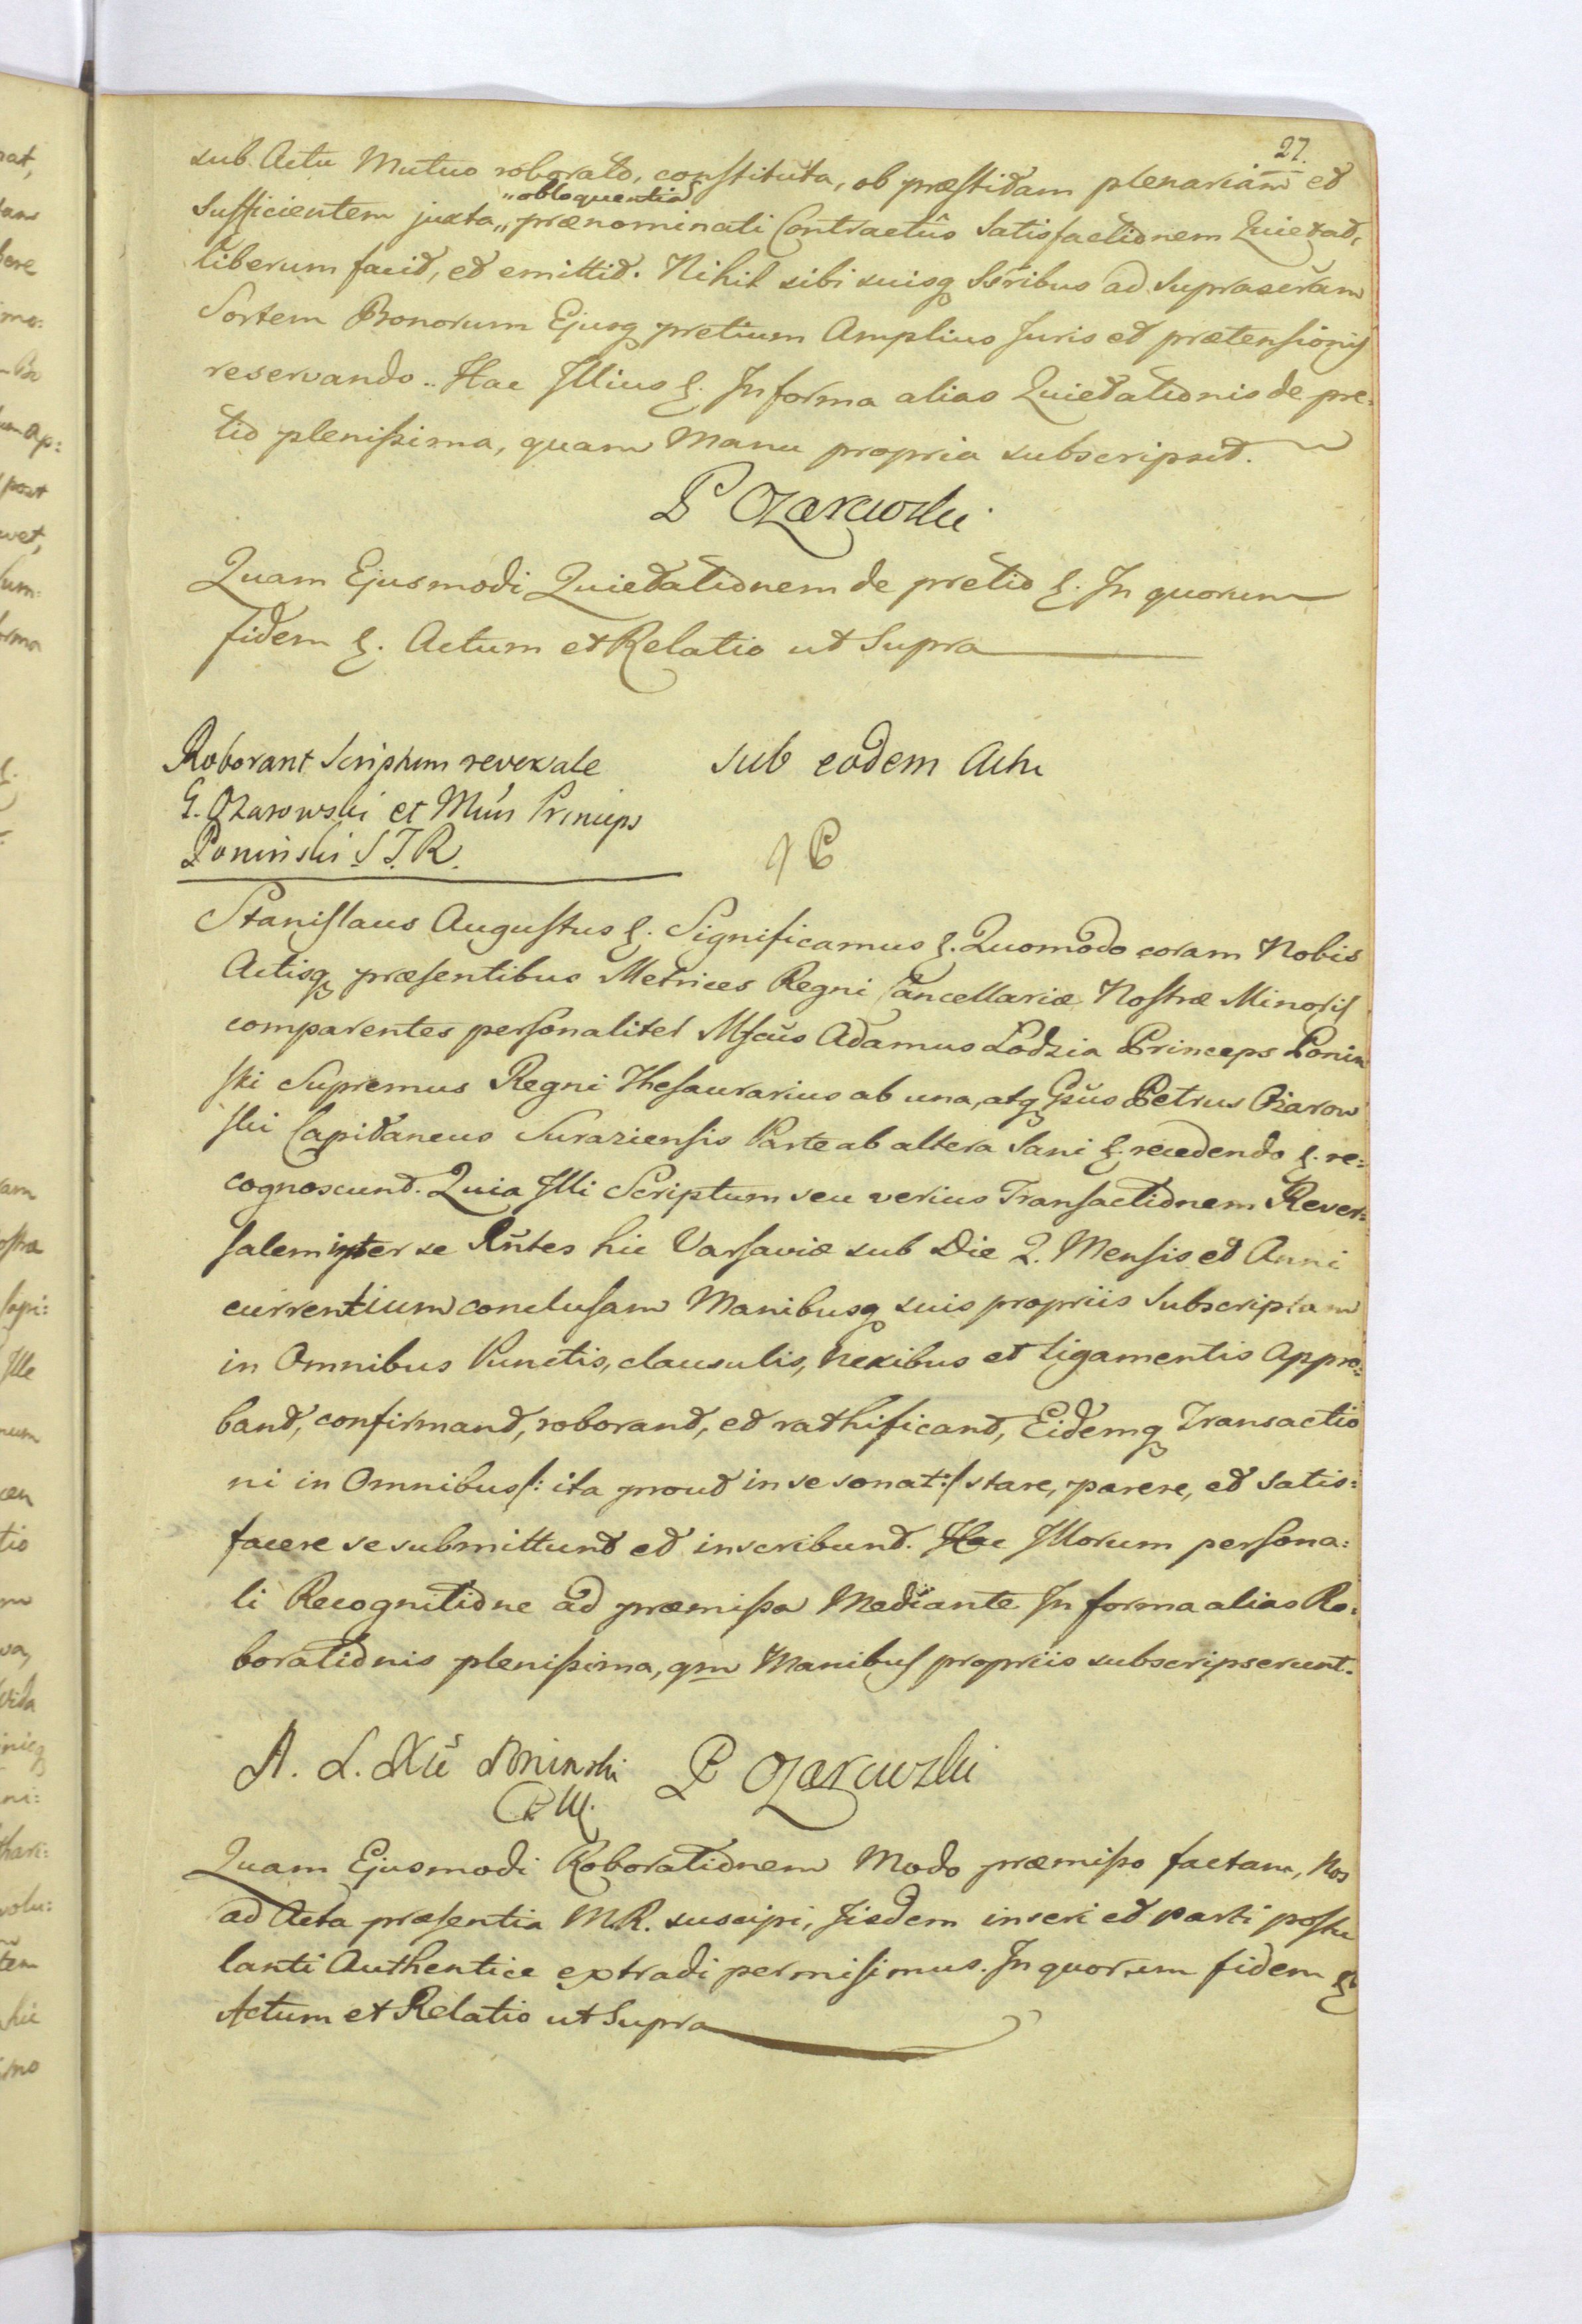 27.
sub Actu Mutuo roborato, constituta, ob præstitam plenariam et
„obloquentia
Sufficientem juxta „ prænominati Contractûs Satisfactionem Quietat,
liberum facit, et emittit. Nihil sibi suisq Ssribus ad Suprascram
Sortem Bonorum Ejusq pretium Amplius Juris et prætensionis
reservando.. Hac Illius &. In forma alias Quietationis de pre:
tio plenissima, quam Manu propria subscripsit.
P Ożarowski
Quam Ejusmodi Quietationem de pretio &. In quorum
fidem &. Actum et Relatio ut Supra
Roborant Scriptum reversale
G. Ożarowski et Mcus Princips
Poninski S.T.R.
sub eodem Actu
Stanislaus Augustus &. Significamus &. Quomodo coram Nobis
Actisq præsentibus Metrices Regni Cancellariæ Nostræ Minoris
comparentes personaliter Mfcus Adamus Lodzia Princeps Ponin
ski Supremus Regni Thesaurarius ab una, atq Gsus Petrus Ożarow
ski Capitaneus Suraziensis Parte ab altera Sani &. recedendo &. re:
cognoscunt. Quia Illi Scriptum seu verius Transactionem Rever:
salem inter se Rntes hic Varsaviæ sub Die 2. Mensis et Anni
currentium conclusam Manibusq suis propriis Subscriptam
in Omnibus Punctis, clausulis, Nexibus et ligamentis Appro:
bant, confirmant, roborant, et rathificant, Eidemq Transactio
ni in Omnibus /: ita prout in se sonat :/ stare, parere, et Satis:
facere se submittunt et inscribunt. Hac Illorum persona:
li Recognitione ad præmissa Mediante In forma alias Ro:
borationis plenissima, qm Manibus propriis subscripserunt.
A. L. Xże Poninski P Ożarowski
Quam Ejusmodi Roborationem Modo præmisso factam, Nos
ad Acta præsentia M.R. suscipi, Iisdem inseri et parti postu
lanti Authentice extradi permisimus. In quorum fidem &
Actum et Relatio ut Supra